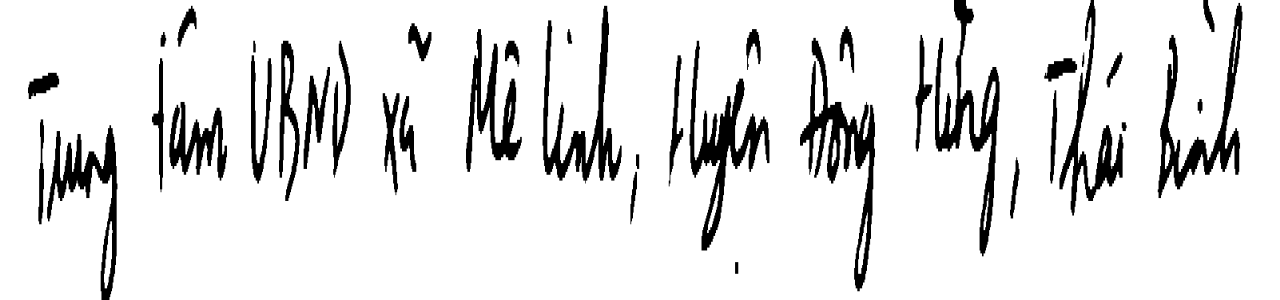 Trung tâm UBND xã Mê Linh, Huyện Đông Hưng, Thái Bình